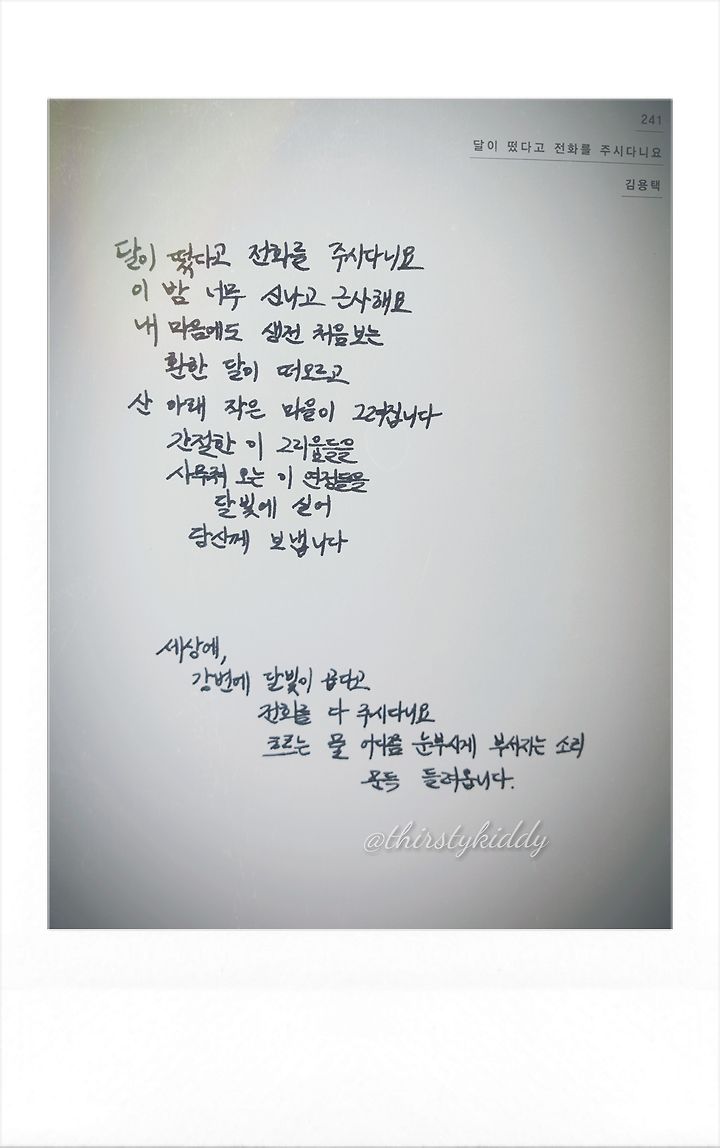 241
달이 떴다고 전화를 주시다니요
김용택
달이 떴다고 전화를 주시다니요
이 밤 너무 신나고 근사해요
내 마음에도 생전 처음 보는
환한 달이 떠오르고
산 아래 작은 마을이 그려집니다
간절한 이 그리움들을
사무쳐 오는 이 연정들을
달빛에 실어
당신께 보냅니다
세상에,
강변에 달빛이 곱다고
전화를 다 주시다니요
흐르는 물 어디쯤 눈부시게 부서지는 소리
문득 들려옵니다.
@thirstykiddy